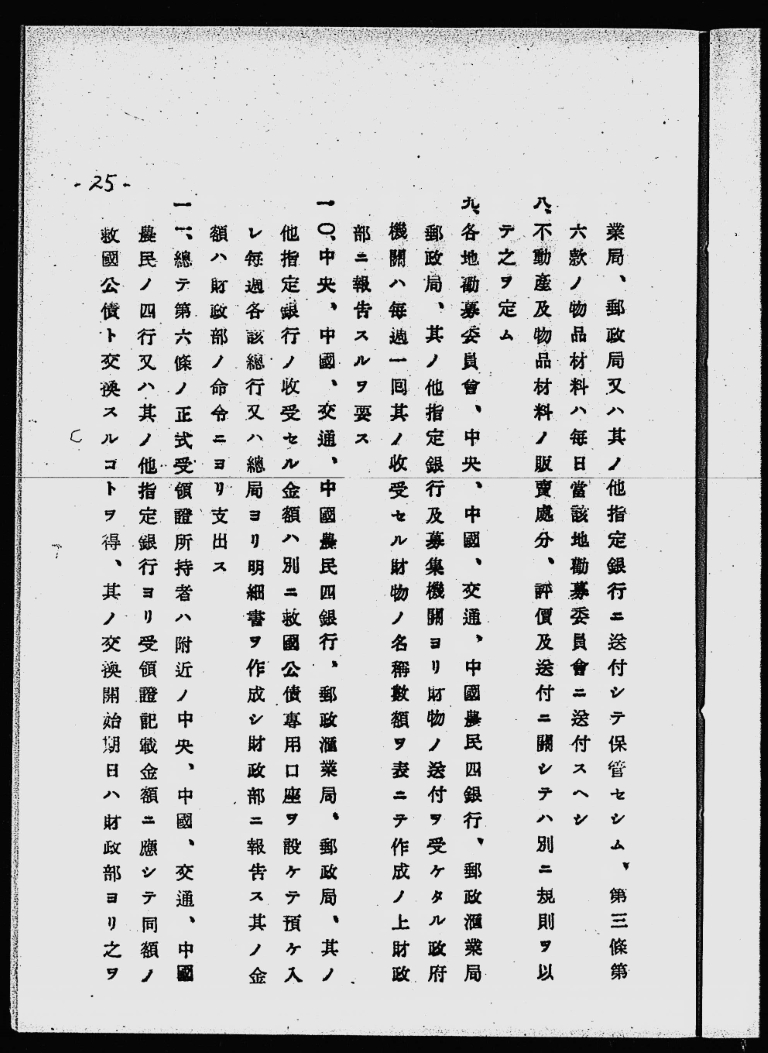 業局、郵政局又ハ其ノ他指定銀行ニ送付シテ保管セシム、第三條第
六款ノ物品材料ハ每日當該地勸募委員會ニ送付スヘシ
八、不動產及物品材料ノ販賣處分、評價及送付ニ關シテハ別ニ規則ヲ以
テ之ヲ定ム
九、各地勸募委員會、中央、中國、交通、中國農民四銀行、郵政滙業局
郵政局、其ノ他指定銀行及募集機關ヨリ財物ノ送付ヲ受ケタル政府
機關ハ每週一囘其ノ收受セル財物ノ名稱數額ヲ表ニテ作成ノ上財政
部ニ報告スルヲ要ス
一〇、中央、中國、交通、中國農民四銀行、郵政滙業局、郵政局、其ノ
他指定銀行ノ收受セル金額ハ別ニ救國公債專用口座ヲ設ケテ預ケ入
レ每週各該總行又ハ總局ヨリ明細書ヲ作成シ財政部ニ報告ス其ノ金
額ハ財政部ノ命令ニヨリ支出ス
一一、總テ第六條ノ正式受領證所持者ハ附近ノ中央、中國、交通、中國
農民ノ四行又ハ其ノ他指定銀行ヨリ受領證記載金額ニ應シテ同額ノ
救國公債ト交換スルコトヲ得、其ノ交換開始期日ハ財政部ヨリ之ヲ
-25-